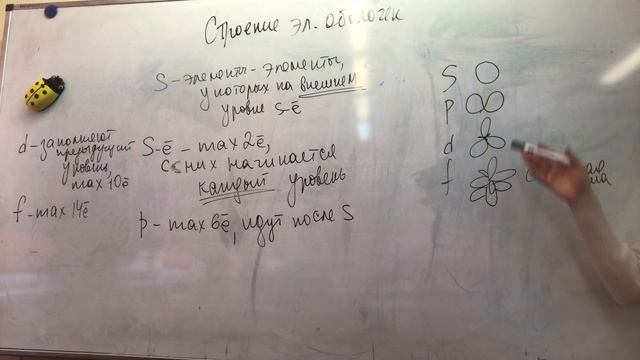 Строение эл. оболочек
S - элементы - элементы,
у которых на внешнем
уровне s-ē
d - заполняют
предыдущий
уровень,
max 10ē
f - max 14ē
S-ē - max 2ē,
с них начинается
каждый уровень
p - max 6ē, идут после S
S
p
d
f